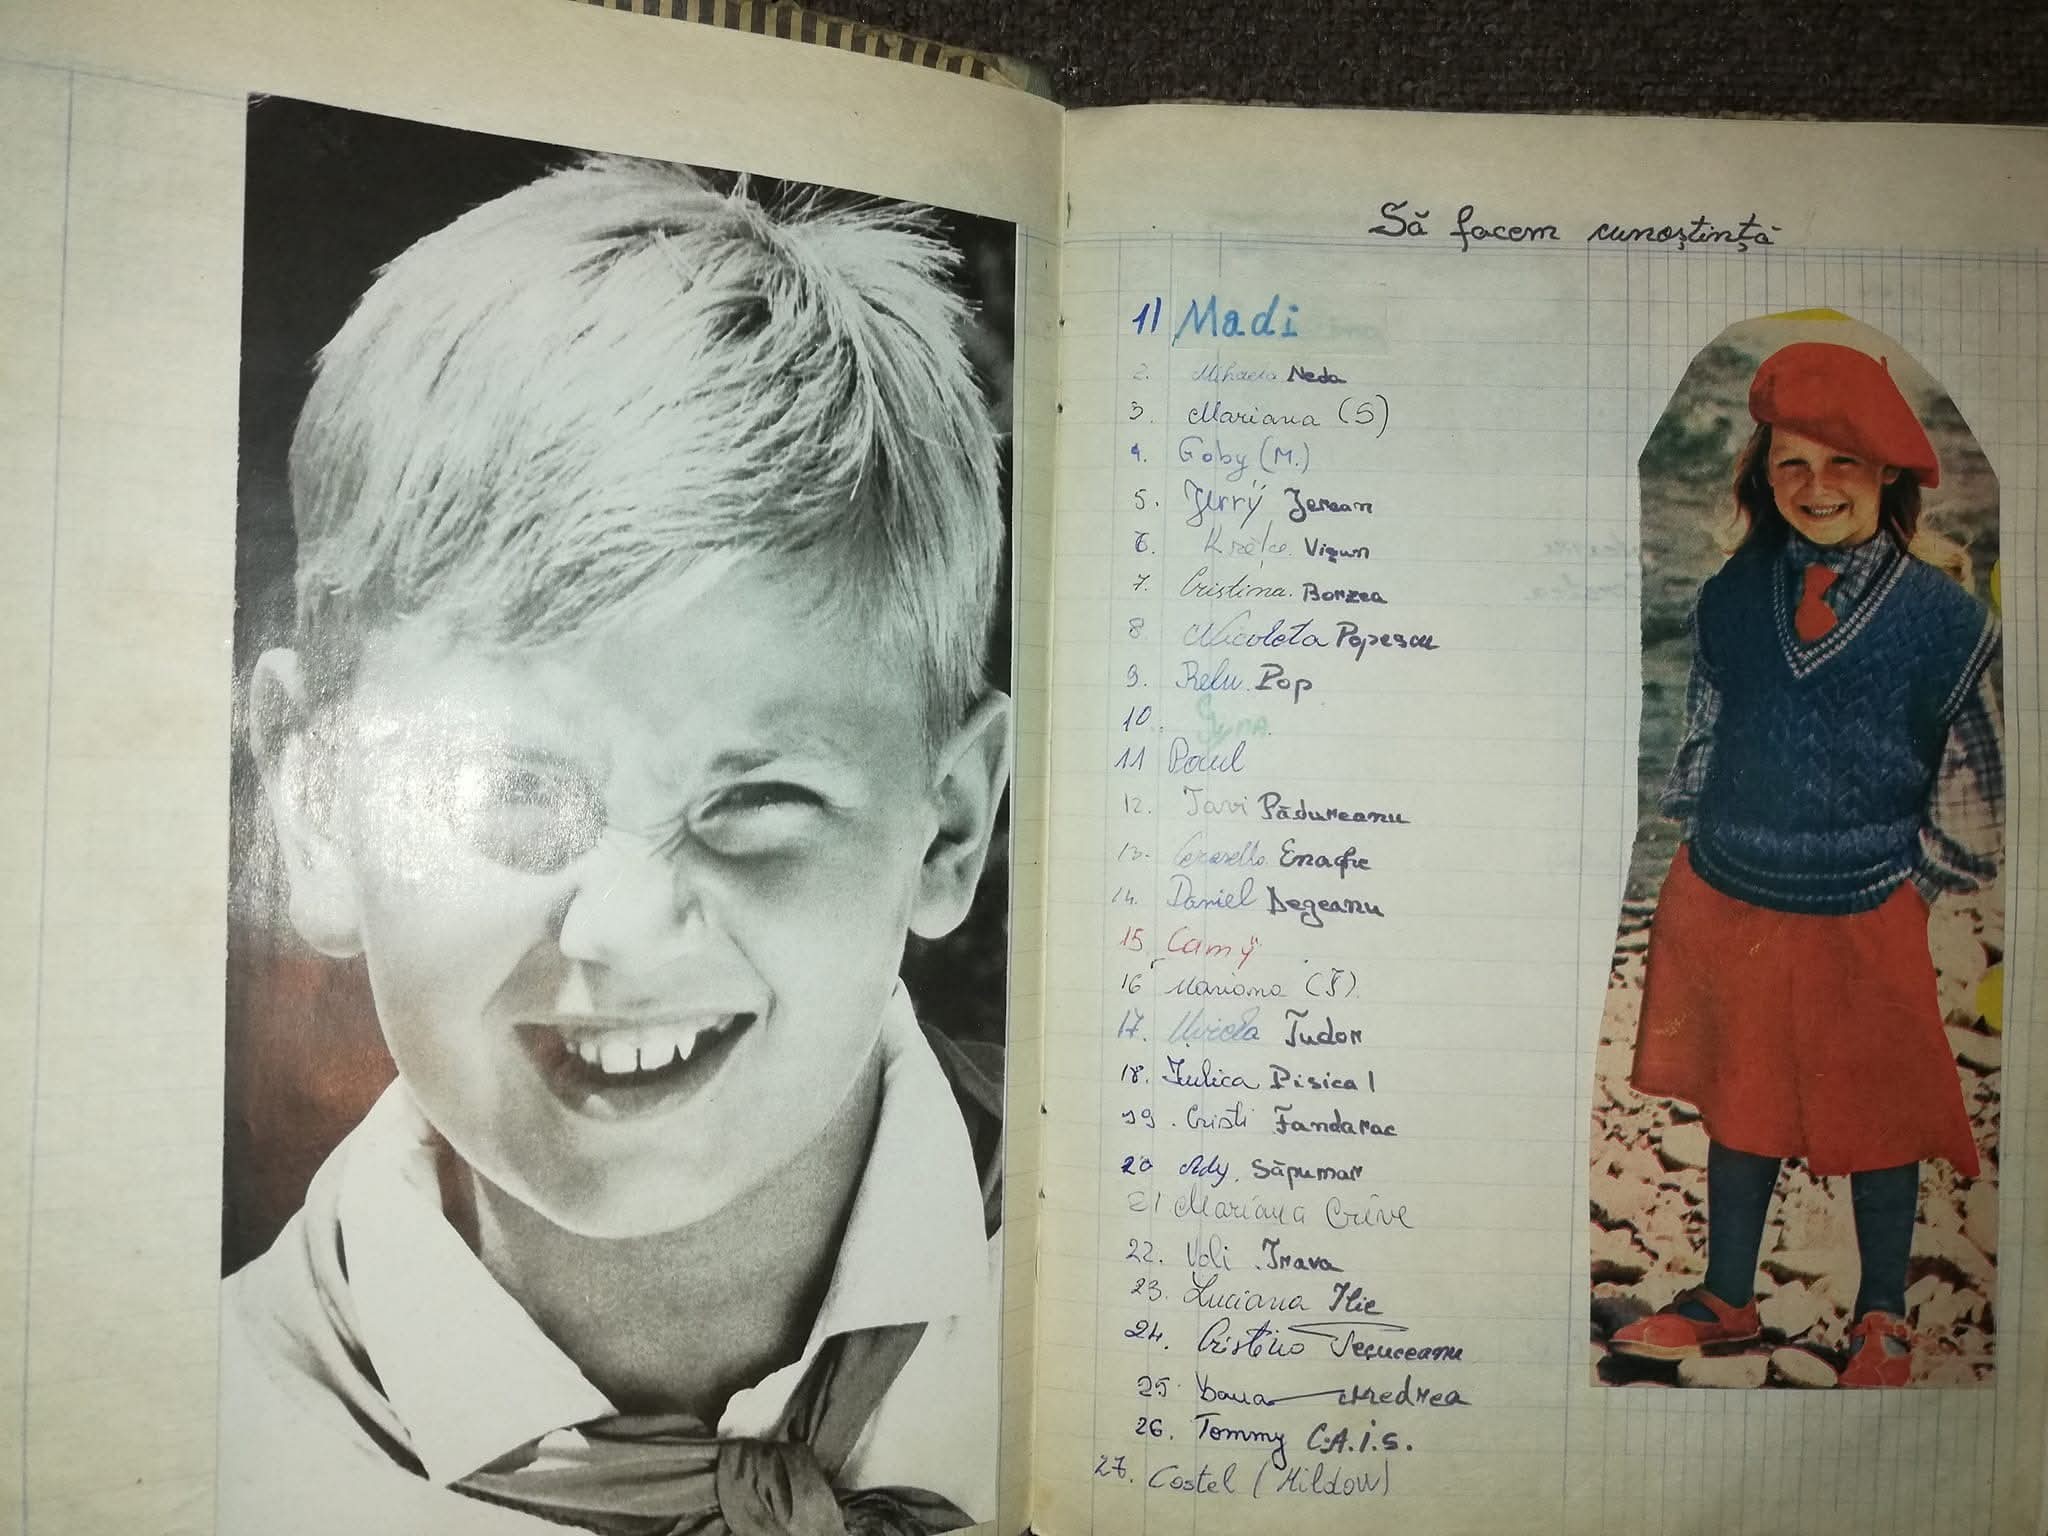 Să facem cunoștință
1) Madi
2. Mihaela Neda
3. Mariana (S)
4. Goby (M.)
5. Jerrÿ Jerean
6. Vișun
7. Cristina. Borzea
8. Nicoleta Popescu
9. Relu. Pop
10.
11 Paul
12. Tavi Pădureanu
13. Enache
14. Daniel Degeanu
15 Camÿ
16 Mariana
17. Mircea Tudor
18. Iulica Pisica 1
19. Cristi Fandarac
20 Ady. Săpunar
21 Mariana
22. Vali Trava
23. Luciana Ilie
24. Tecuceanu
25. Dana Nedrea
26. Tommy C.A.I.S.
27. Costel (Mildow)